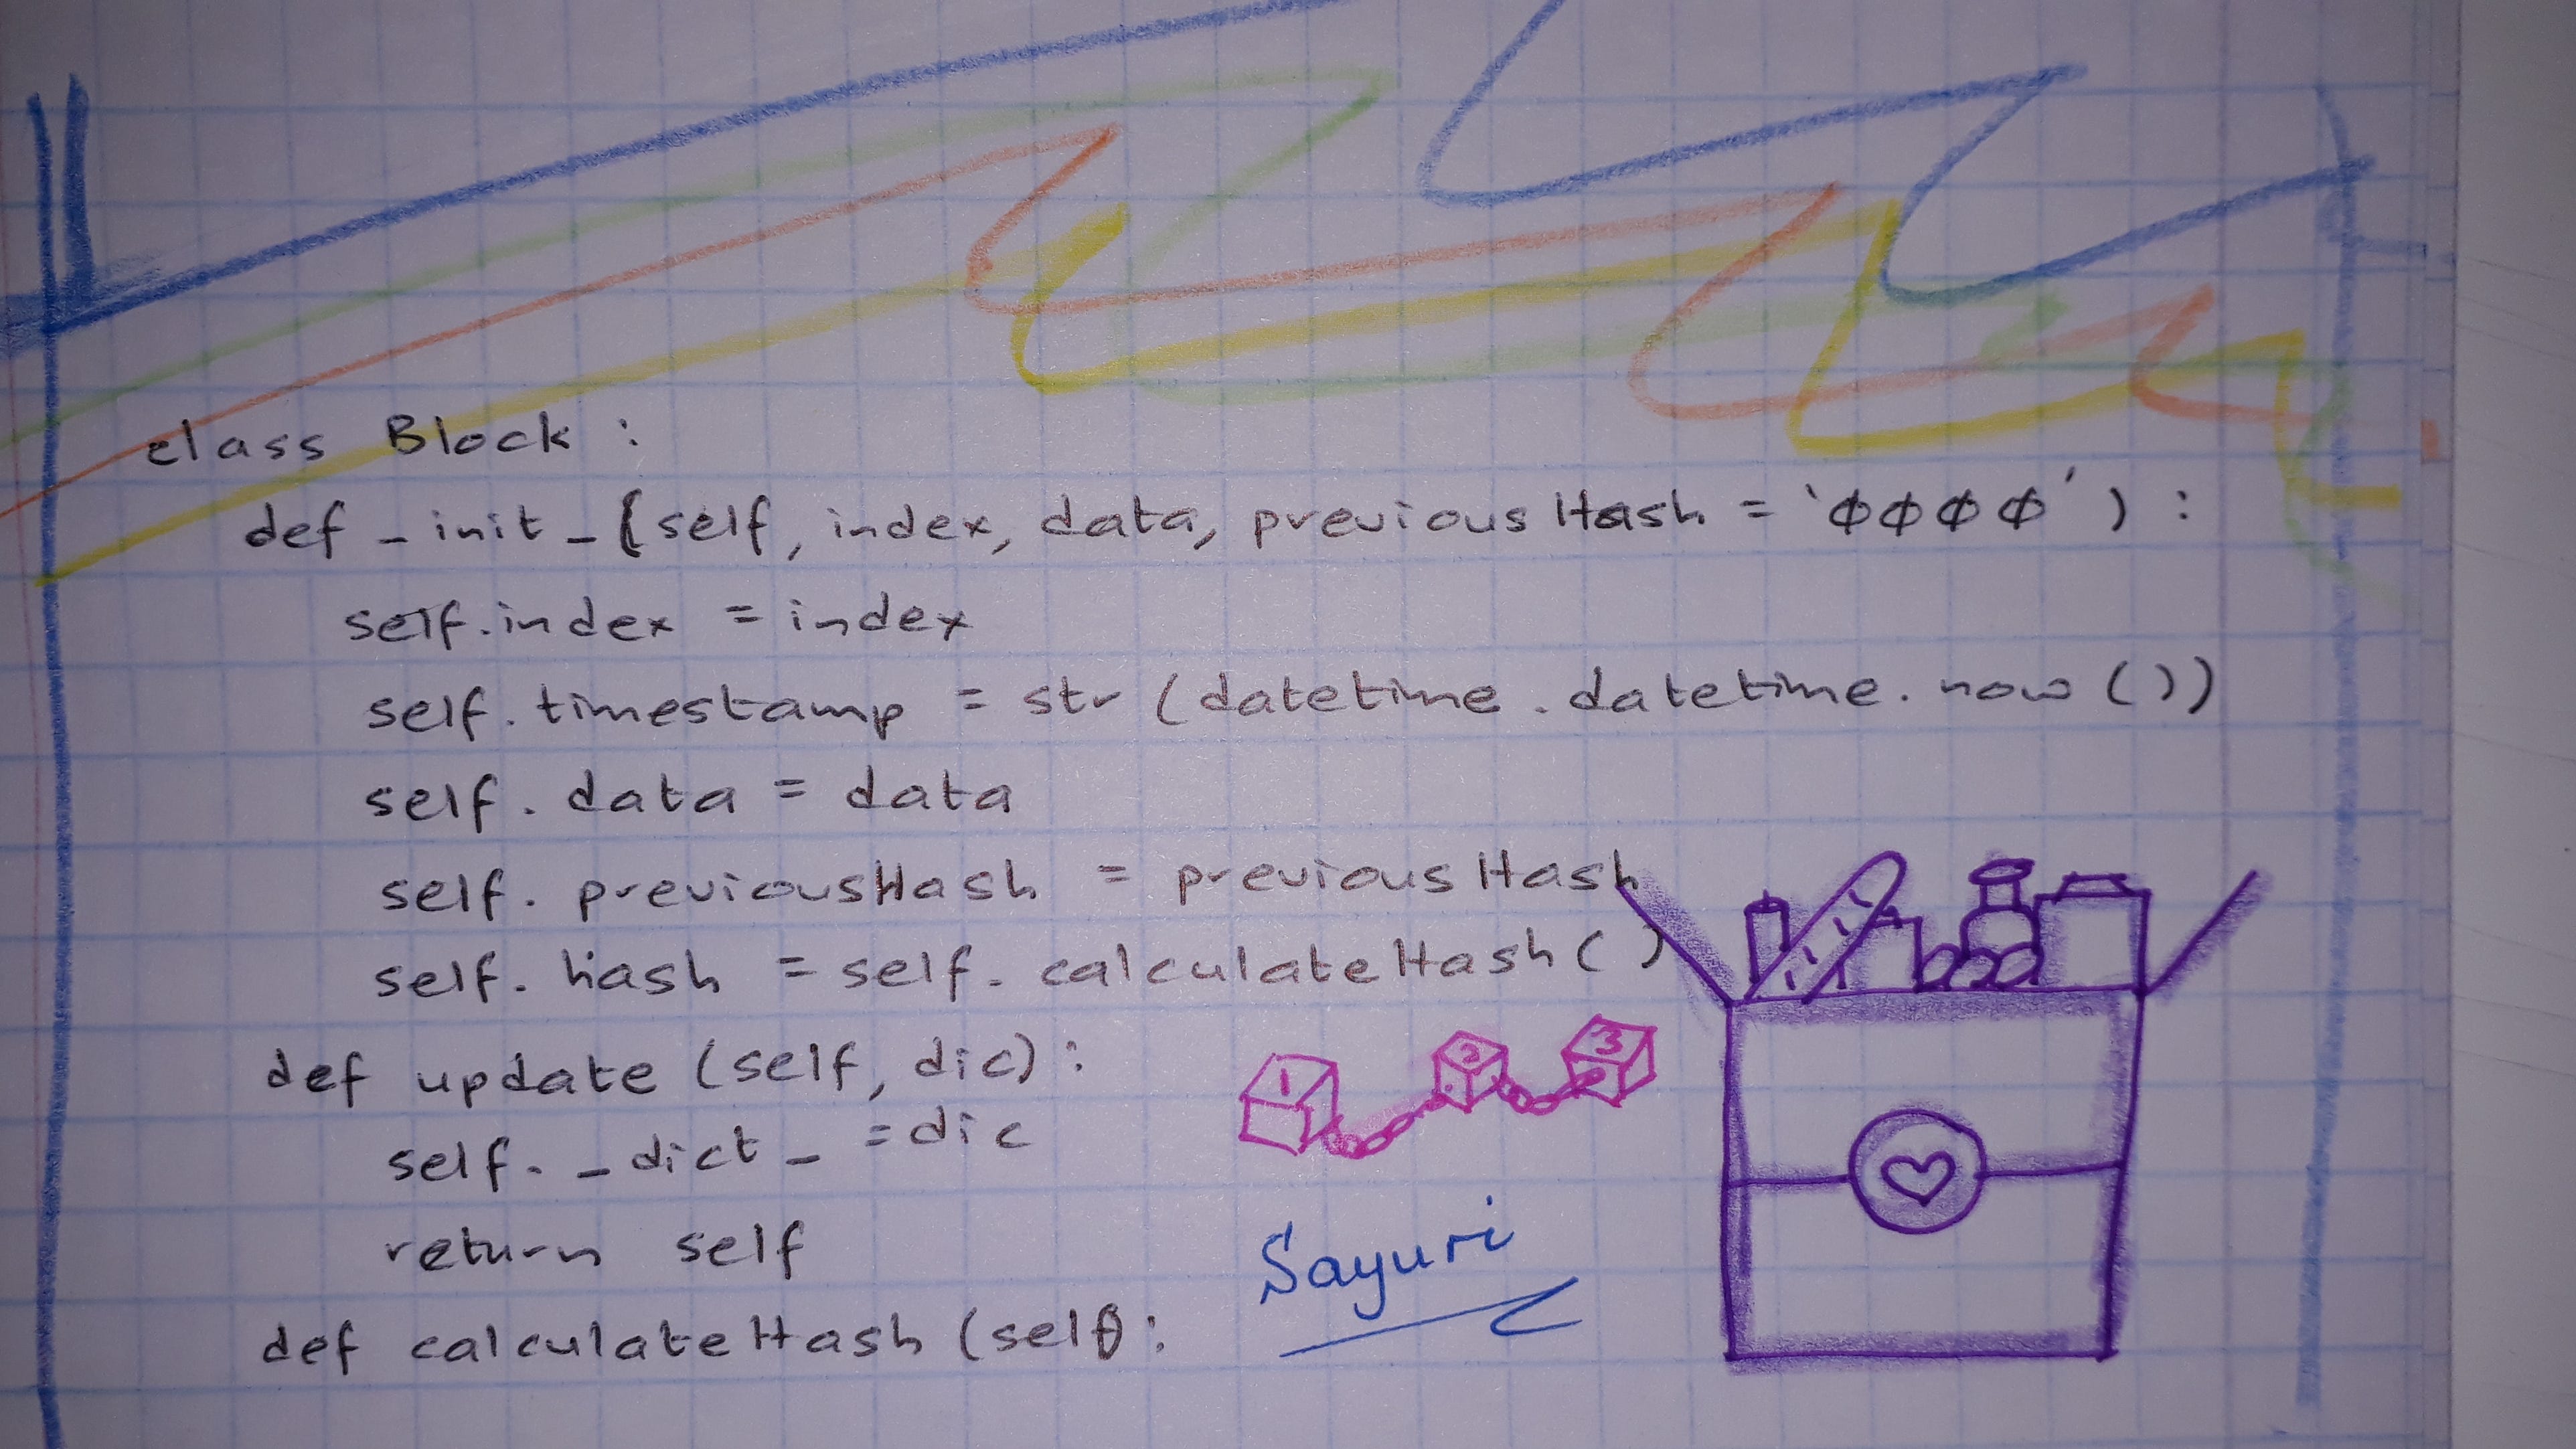 class Block :
def _ init _ (self, index, data, previousHash = '0000') :
self.index = index
self. timestamp = str (datetime . datetime. now ())
self. data = data
self. previousHash = previousHash
self. hash = self. calculateHash ( )
1 2 3
def update (self, dic) :
self. _ dict _ = dic
return self
Sayuri
def calculateHash (self) :